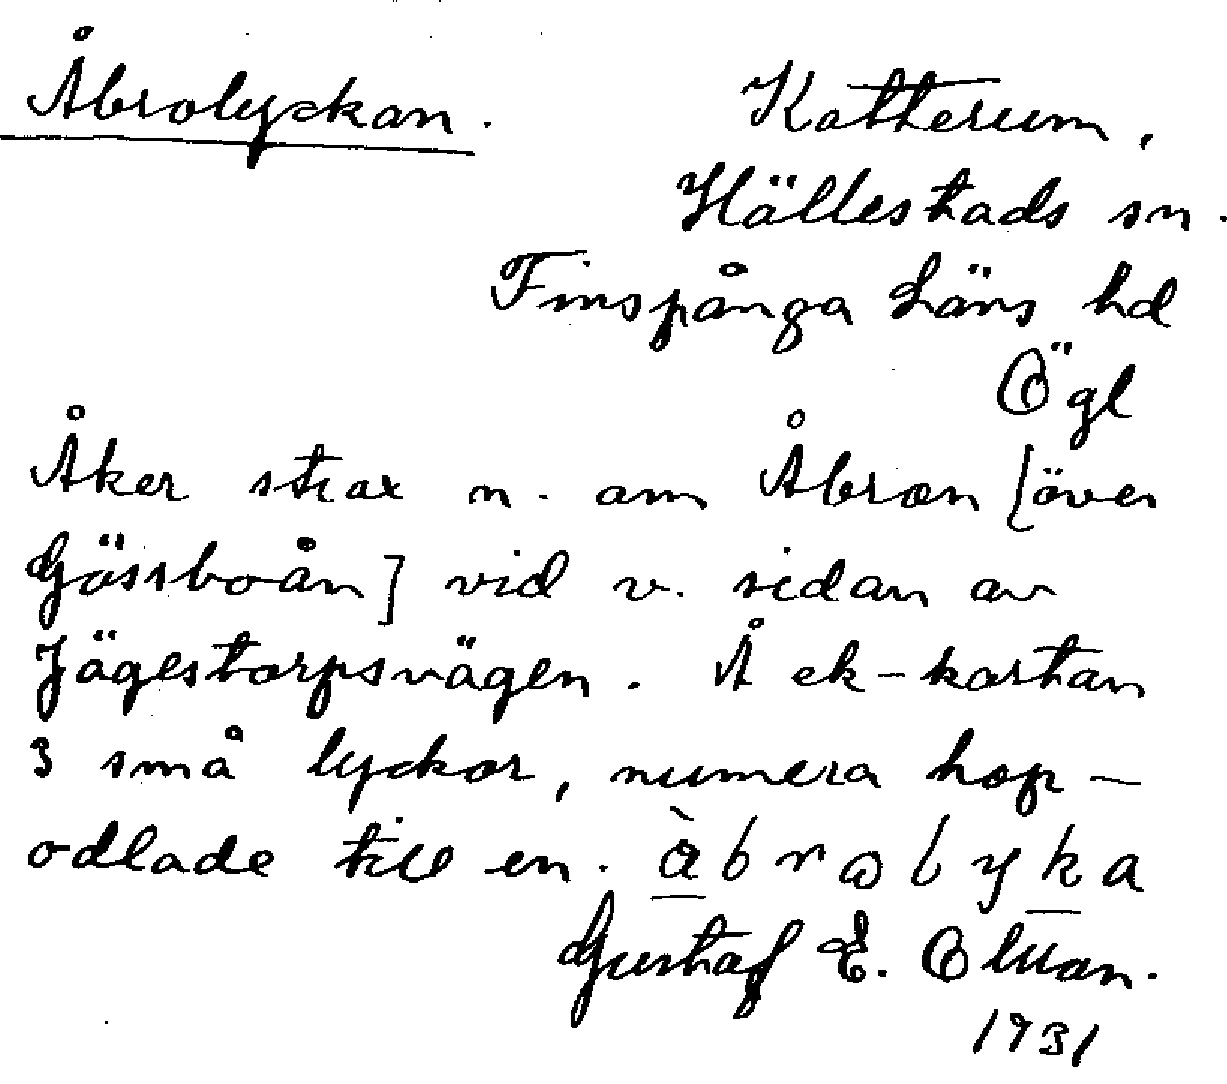 Åbrolyckan. Katterum,
Hällestads sn.
Finspånga läns hd
Ögl
Åker strax n. om Åbron [över
Gässboån] vid v. sidan av
Jägestorpsvägen. Å ek-kartan
3 små lyckor, numera hop-
odlade till en.
Gustaf E.
1931